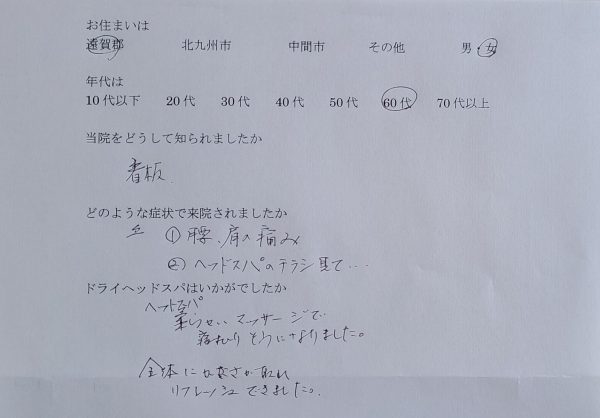 お住まいは
遠賀郡 北九州市 中間市 その他 男・女
年代は
10代以下 20代 30代 40代 50代 60代 70代以上
当院をどうして知られましたか
看板.
どのような症状で来院されましたか
① 腰、肩の痛み
② ヘッドスパのチラシ見て....
ドライヘッドスパはいかがでしたか
ヘッドスパ
マッサージで
そうになりました。
全体に 取れ
リフレッシュできました。